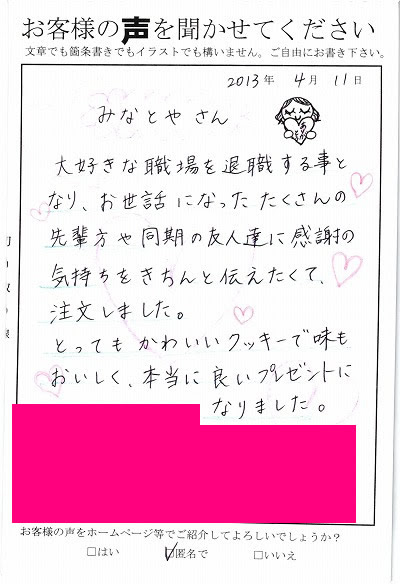 お客様の声を聞かせてください
文章でも箇条書きでもイラストでも構いません。ご自由にお書き下さい。
2013年 4月 11日
みなとやさん
大好きな職場を退職する事と
なり、お世話になったたくさんの
先輩方や同期の友人達に感謝の
気持ちをきちんと伝えたくて、
注文しました。
とってもかわいいクッキーで味も
おいしく、本当に良いプレゼントに
なりました。
お客様の声をホームページ等でご紹介してよろしいでしょうか?
□はい ☑匿名で □いいえ